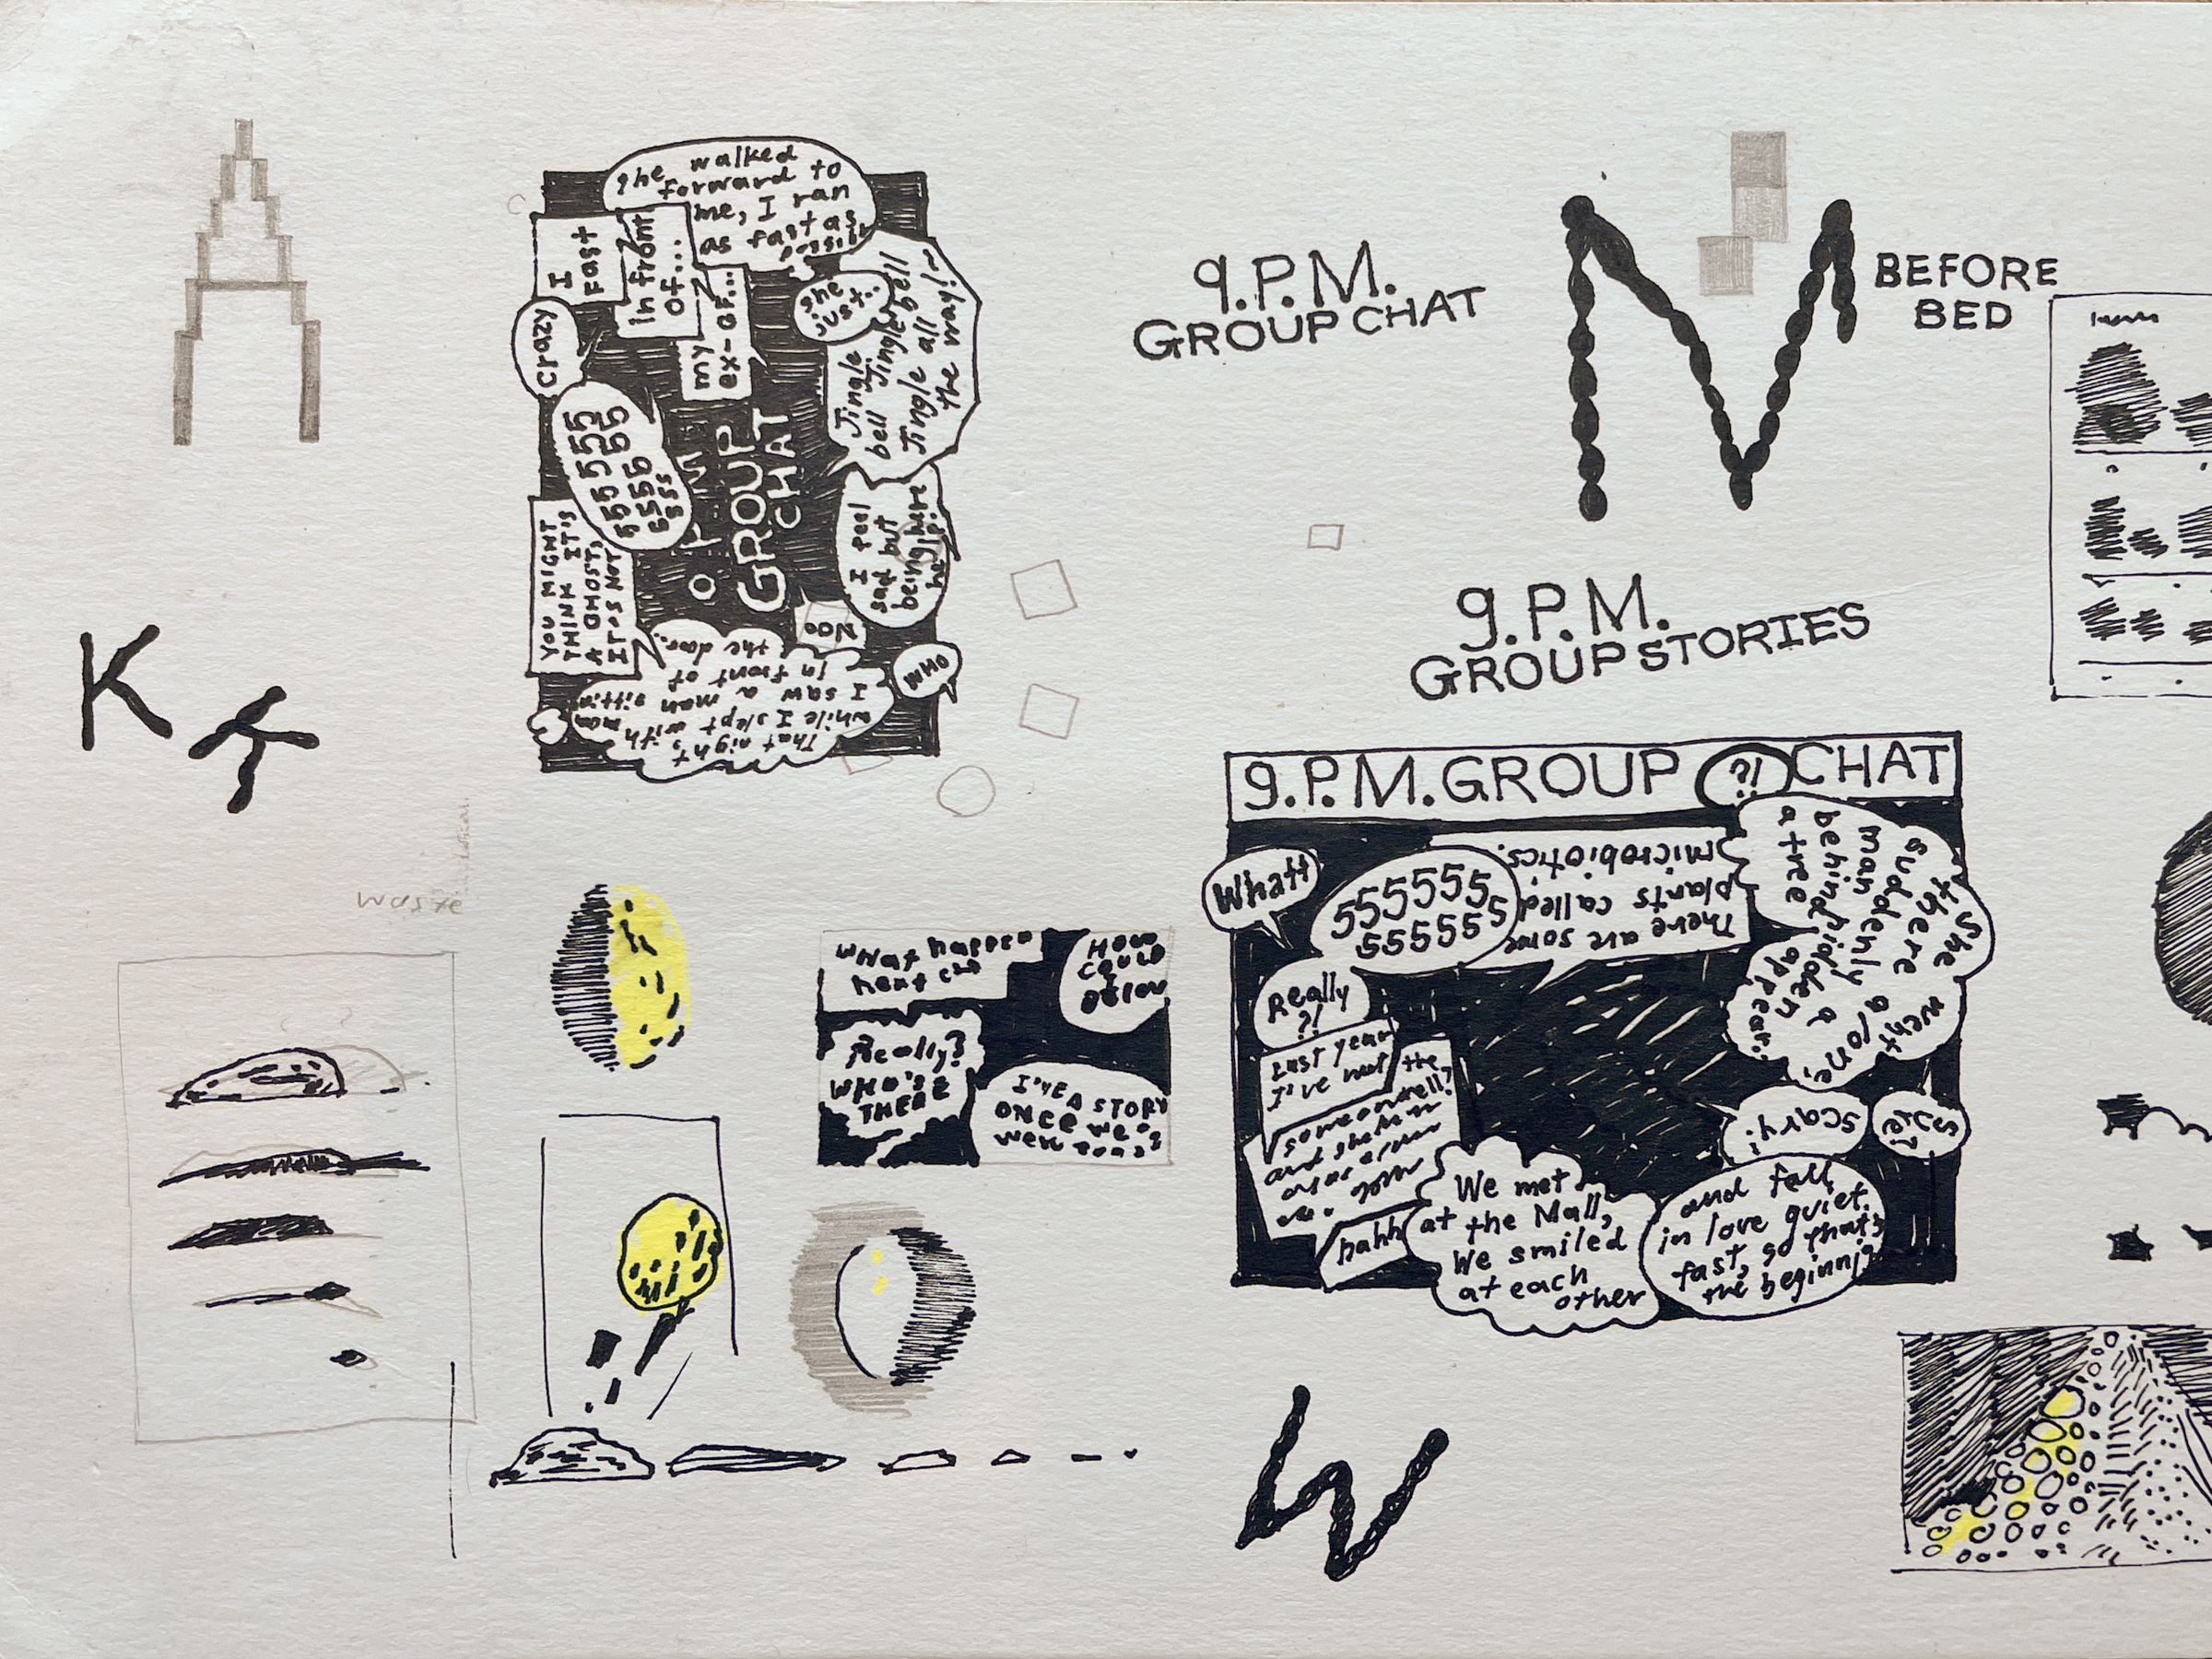 she walked
forward to
me, I ran
as fast as
possible
I
Fast
in front
of...
my
ex-of...
she
just..
crazy
Jingle bell
bell Jingle
Jingle all
the way!~
555555
555555
65556
5555
GROUP
CHAT
I feel
sad but
being here
help!
YOU MIGHT
THINK IT'S
A GHOST,
IT'S NOT
Noo
WHO
That night,
while I slept with mom
I saw a man sittin
in front of
the door.
9.P.M.
GROUP CHAT
N
BEFORE
BED
9.P.M.
GROUP STORIES
K
K
waste
What happen
next
HOW
COULD
Really?
WHO'S
THERE
I'VE A STORY
ONCE We
were
9.P.M.GROUP
?!
CHAT
Whatt
555555
555555
There are some
plants called
Microbiotics.
She went
there alone,
suddenly a
man hidden
behind appear.
a tree
Really
?!
Last year
I've met the
someone
well?
and
hahh
We met
at the Mall,
We smiled
at each
other
scary!
and fall
in love quiet
fast, so that's
the beginnig
W